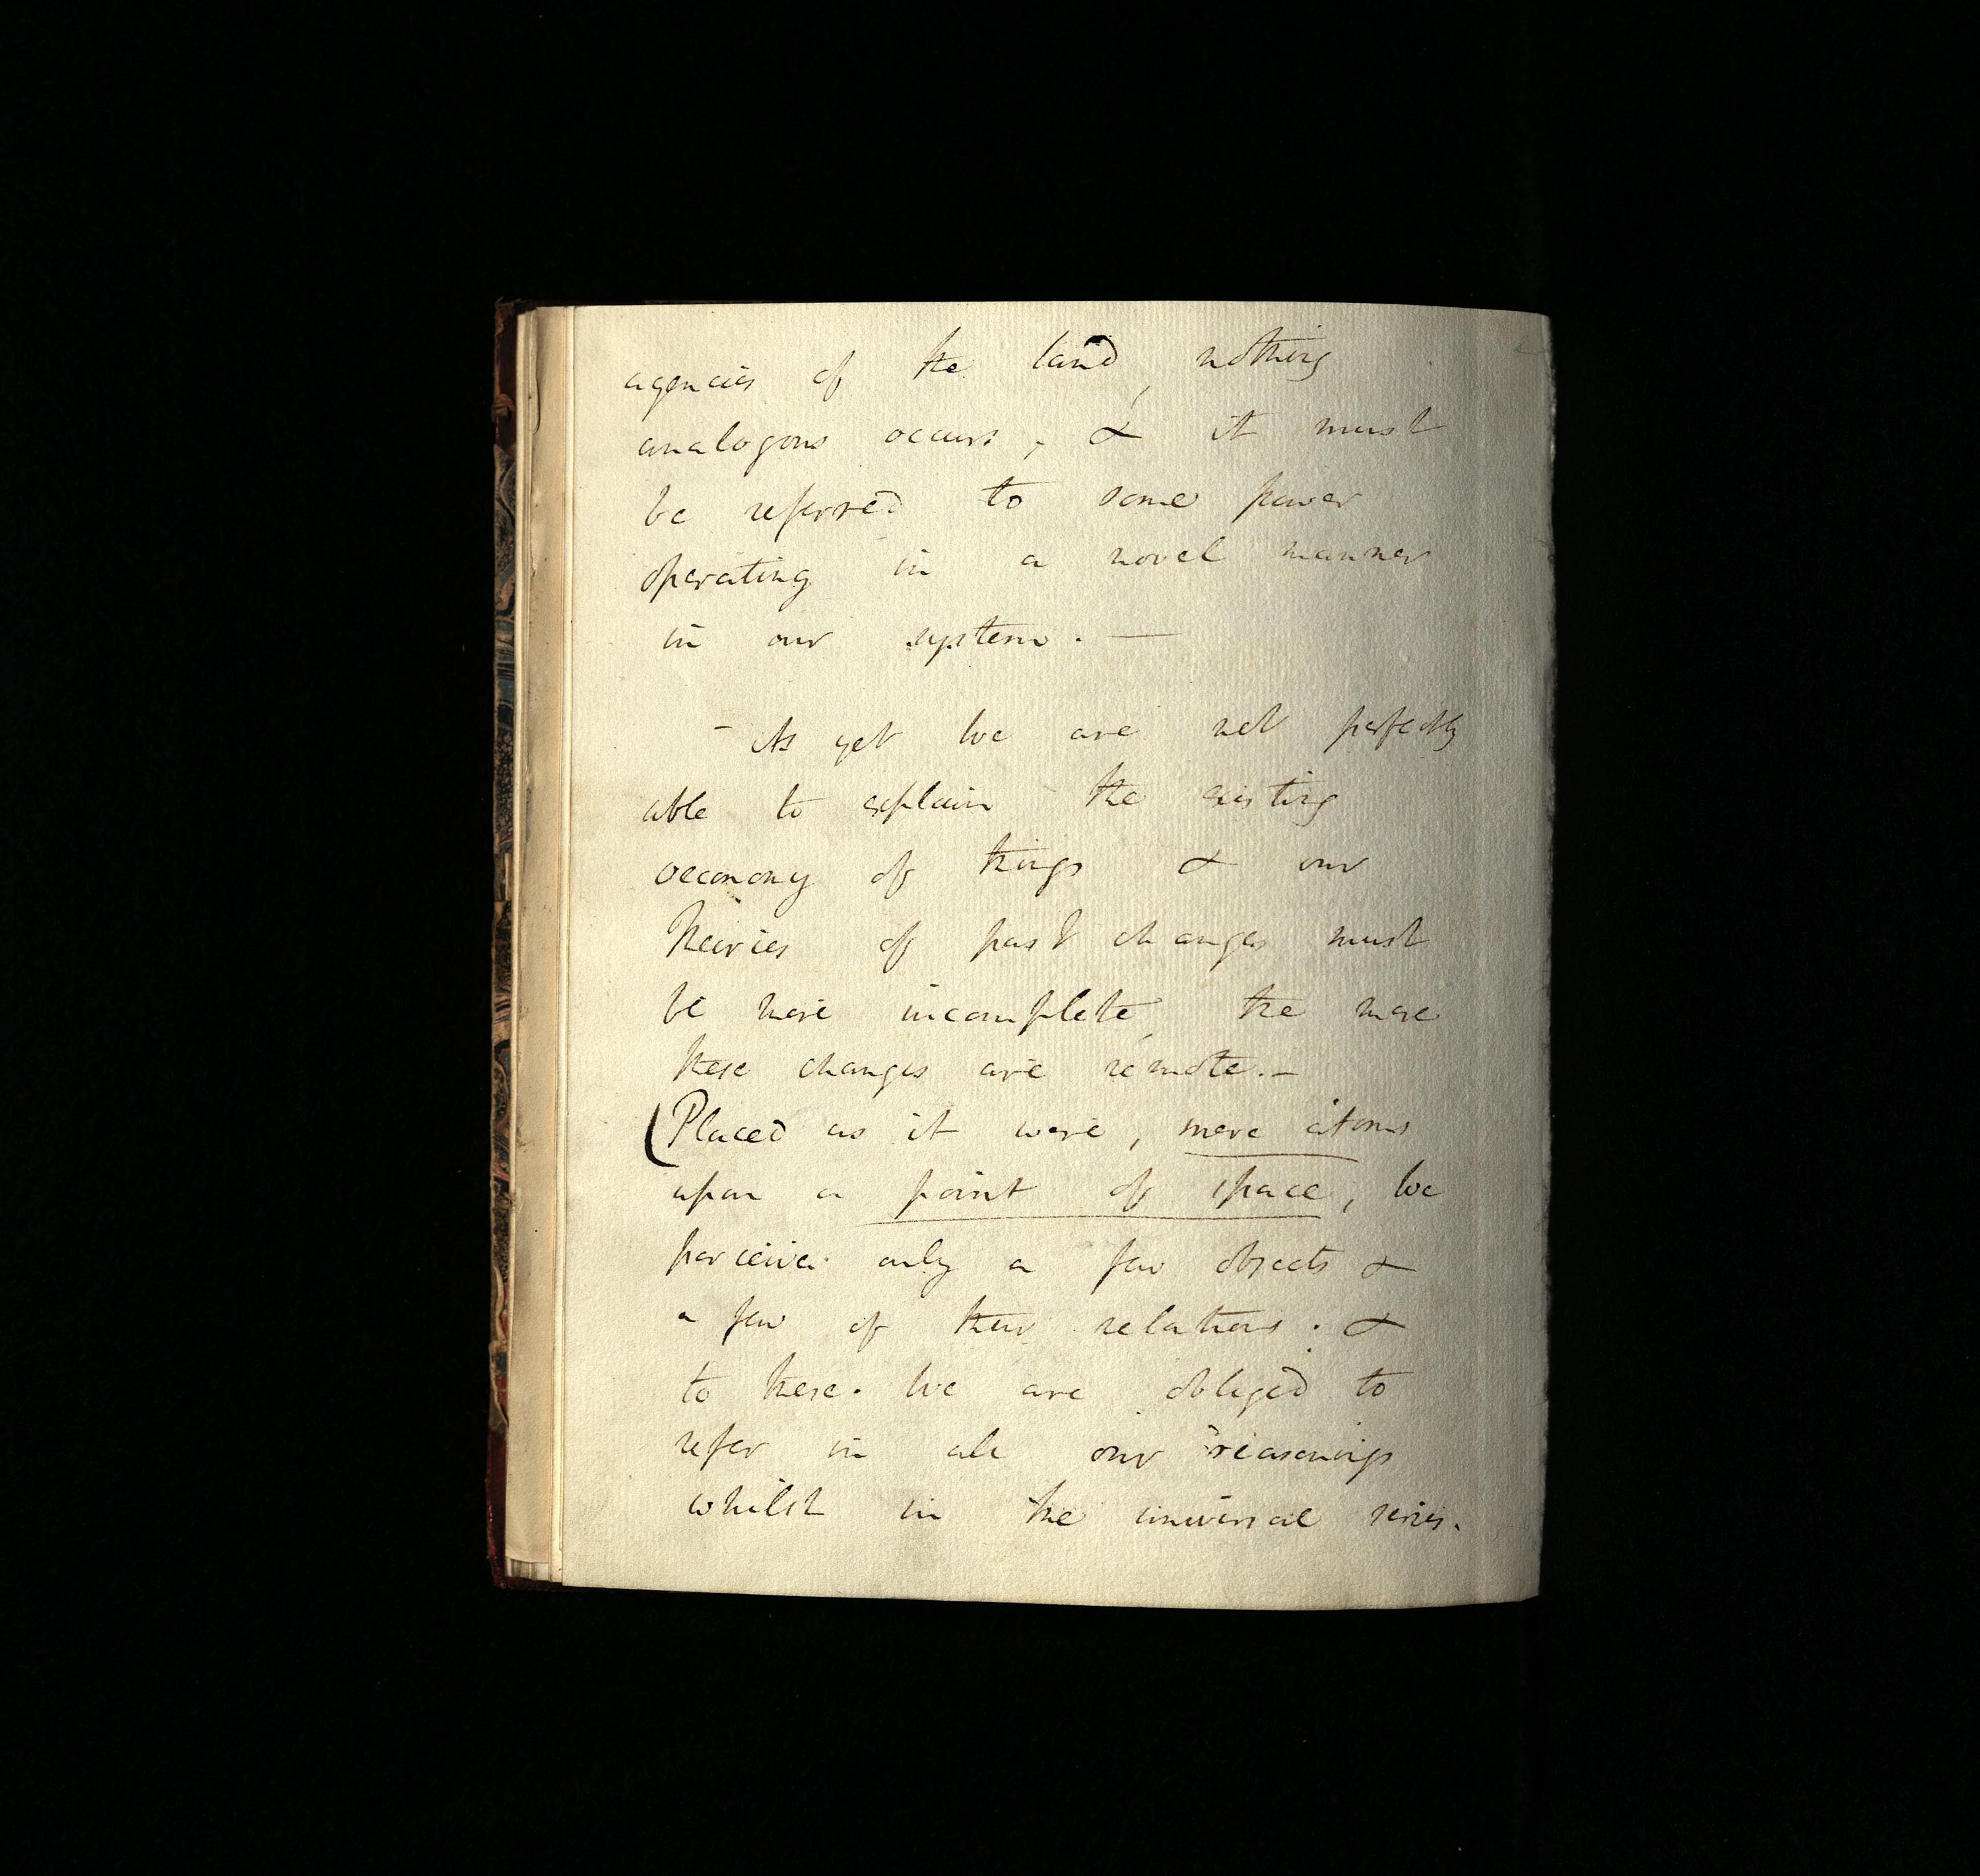 agencies of the land, nothing
analogous occurs, & it must
be referred to some power
operating in a novel manner
in our system. —
- As yet we are not perfectly
able to explain the existing
oeconomy of things & our
theories of past changes must
be more incomplete, the more
these changes are remote. -
(Placed as it were, mere atoms
upon a point of space, we
perceive only a few objects &
a few of their relations. &
to these. we are obliged to
refer in all our reasonings
whilst in the universal series.